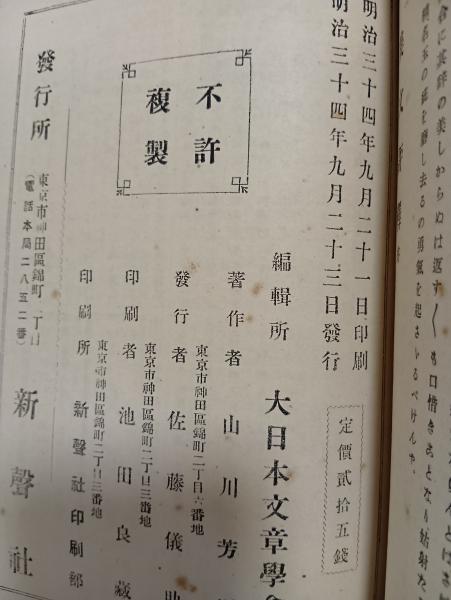 明治三十四年九月二十一日印刷
明治三十四年九月二十三日發行
定價貳拾五錢
不許
複製
編輯所 大日本文章學會
著作者 山川芳
東京市神田區錦町二丁目六番地
發行者 佐藤儀助
東京市神田區錦町二丁目三番地
印刷者 池田良藏
東京市神田區錦町二丁目三番地
印刷所 新聲社印刷部
東京市神田區錦町
(電話本局二八五二番)
發行所 新聲社